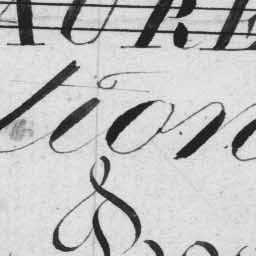 AURE
tion
&